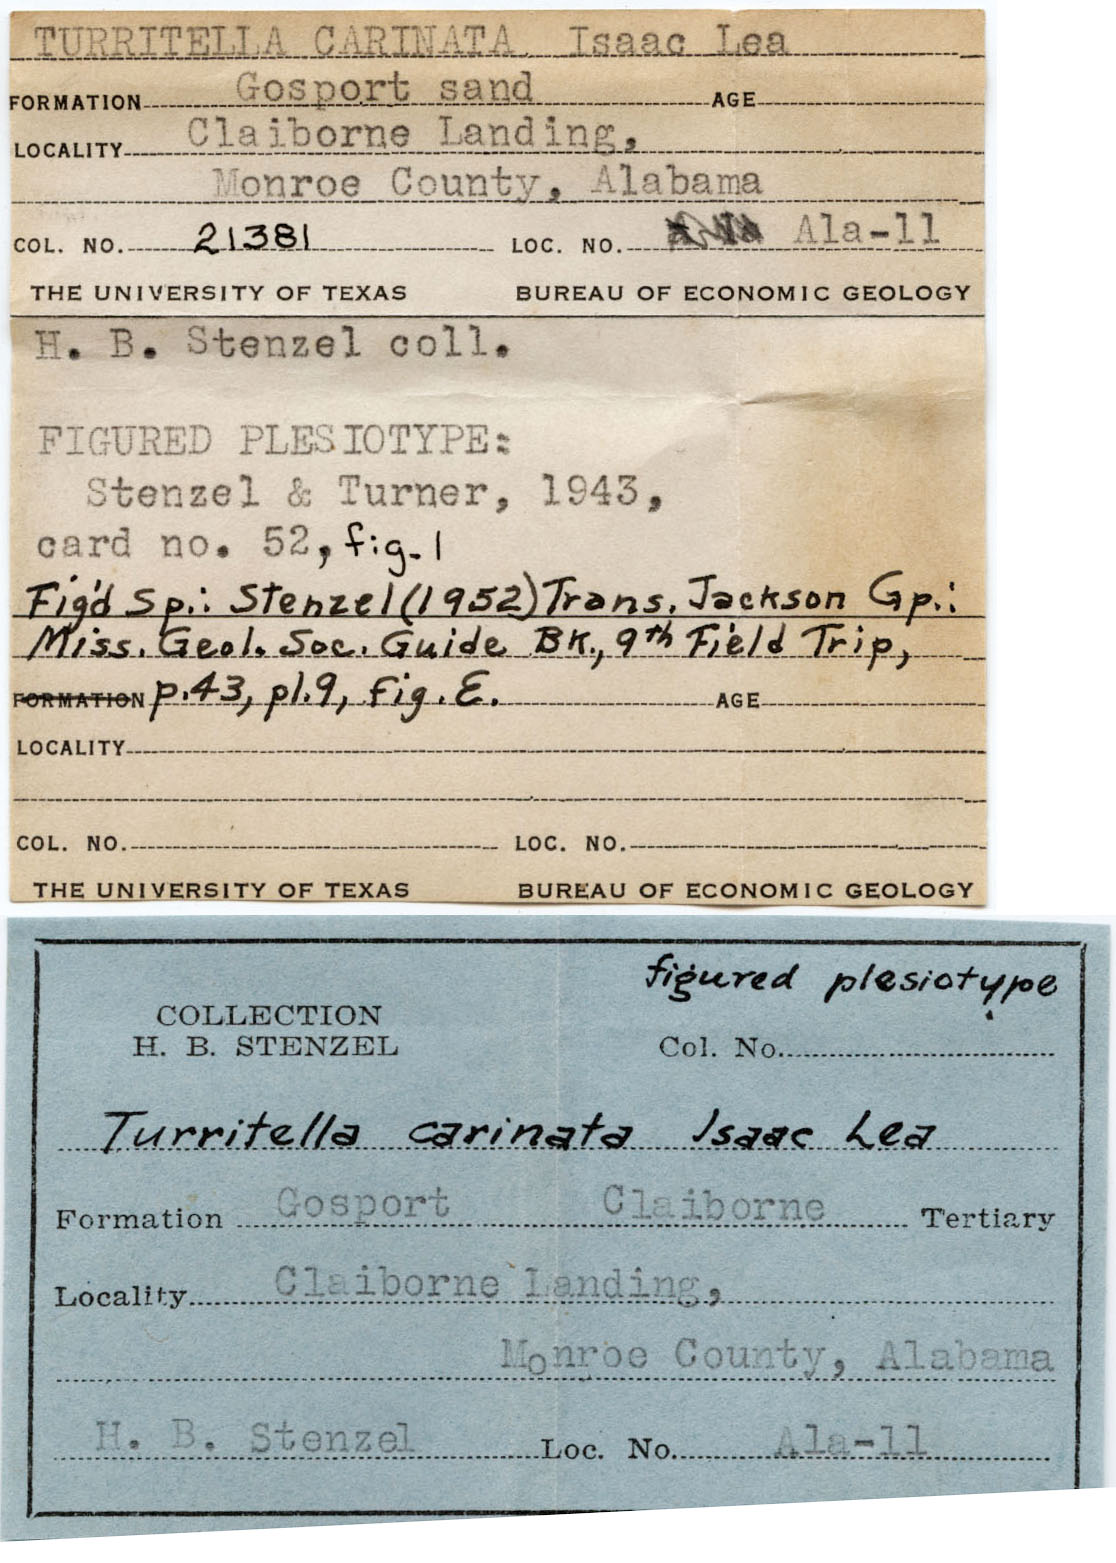 TURRITELLA CARINATA Isaac Lea
FORMATION Gosport sand AGE
LOCALITY Claiborne Landing,
Monroe County, Alabama
COL. NO. 21381 LOC. NO. Ala-11
THE UNIVERSITY OF TEXAS BUREAU OF ECONOMIC GEOLOGY
H. B. Stenzel coll.
FIGURED PLESIOTYPE:
Stenzel & Turner, 1943,
card no. 52, fig. 1
Fig'd Sp.: Stenzel (1952) Trans. Jackson Gp.:
Miss. Geol. Soc. Guide Bk., 9th Field Trip,
FORMATION p.43, pl.9, fig. E. AGE
LOCALITY
COL. NO. LOC. NO.
THE UNIVERSITY OF TEXAS BUREAU OF ECONOMIC GEOLOGY
figured plesiotype
COLLECTION
H. B. STENZEL Col. No.
Turritella carinata Isaac Lea
Formation Gosport Claiborne Tertiary
Locality Claiborne Landing,
Monroe County, Alabama
H. B. Stenzel Loc. No. Ala-11